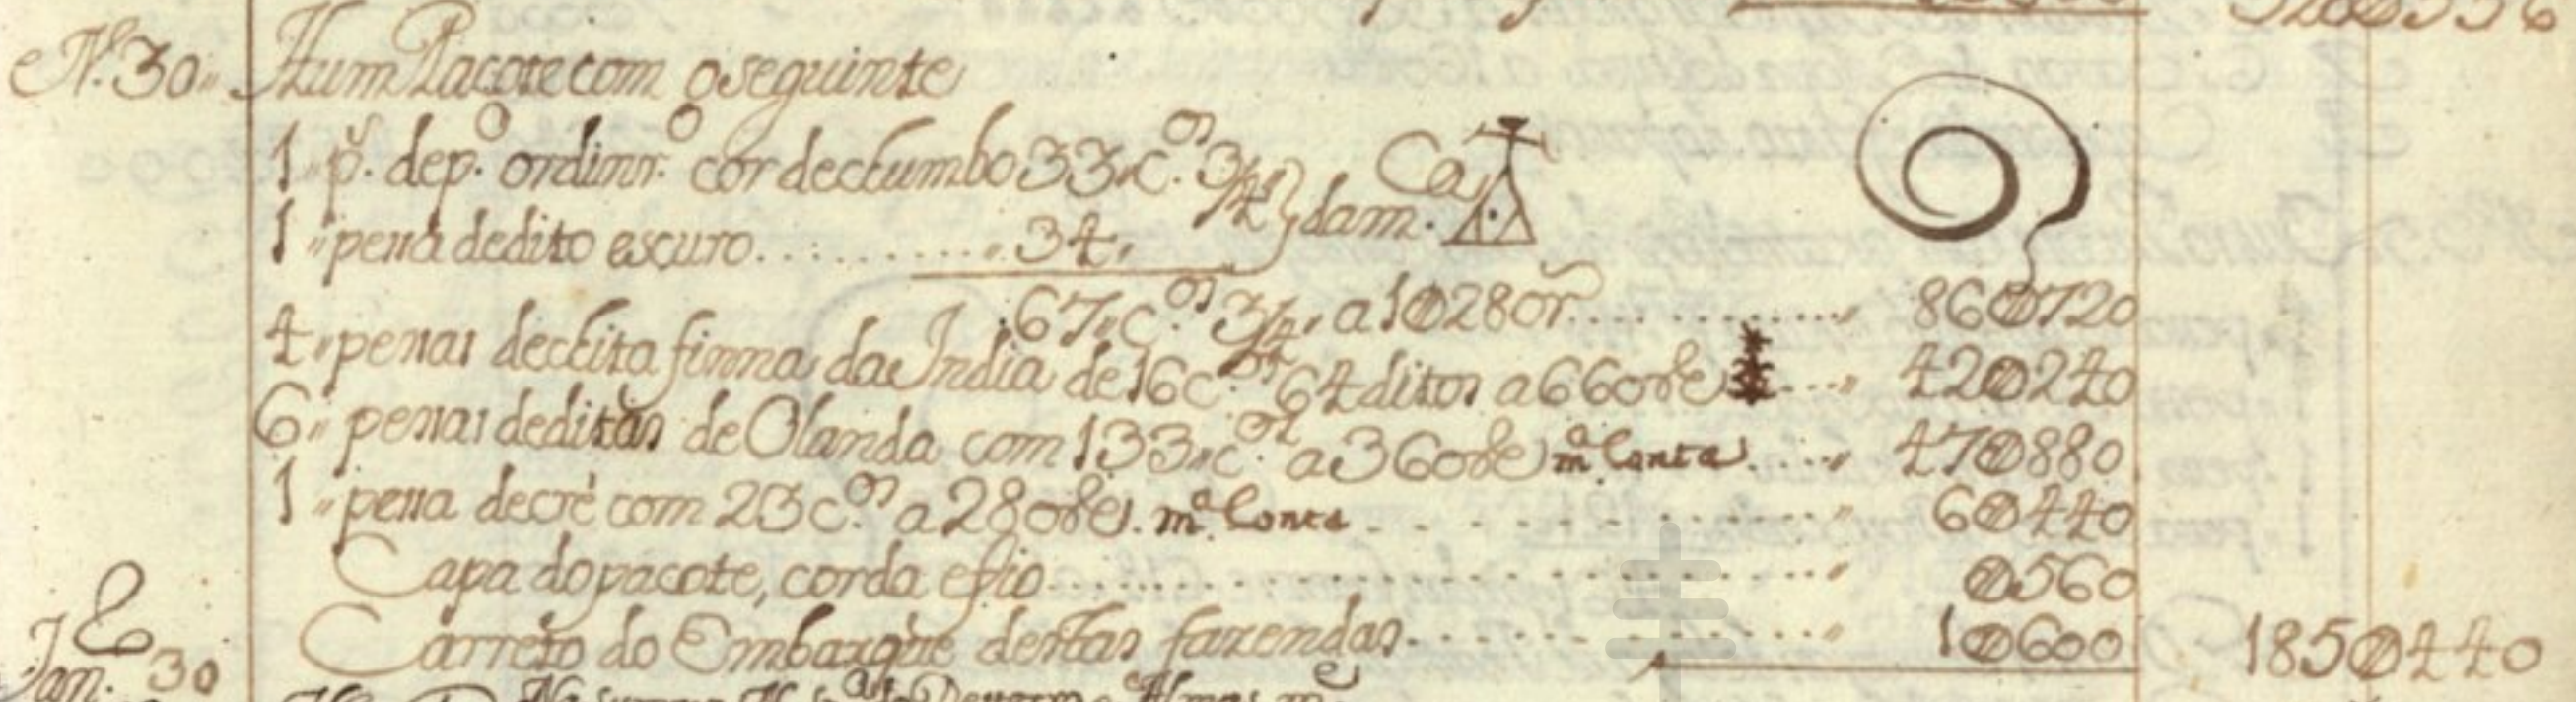 N.º 30,, Hum Pacote com o seguinte
1,, p.ª de p.º ordinr.º cor de chumbo 33,, c.os 3/4,, } dam. Ca
1,, pessa de dito escuro .......... ,, 34,,
67,, c.os 3/4,, a 1$280 r ............ ,, 86$720
4,, pessas de chita finna da India de 16 c.os 64 ditos a 660 ....,, 42$240
6,, pessas de ditas de Olanda com 133,, c.os a 360 m.ª conta ....,, 47$880
1,, pessa de cré com 23 c.os a 280 m.ª conta ..........,, 6$440
Capa do pacote, corda e fio ..............,, $560
Carreto do Embarque destas fazendas ..............,, 1$600 185$440
Jan. 30